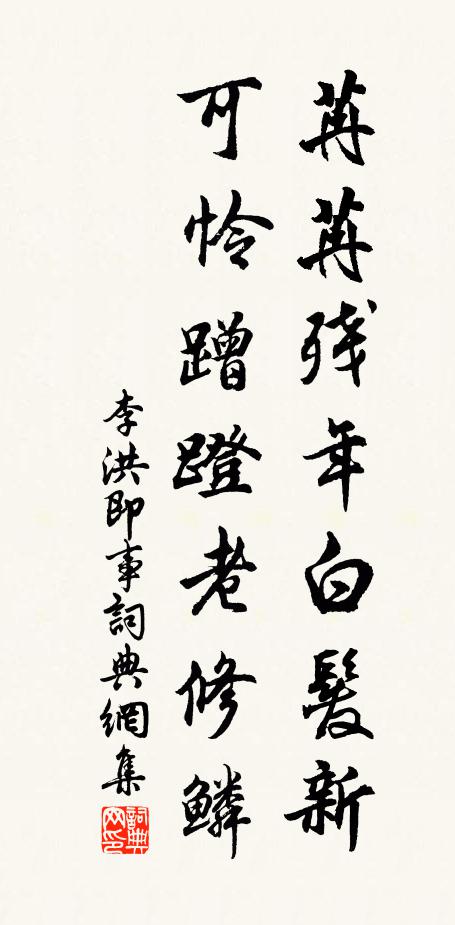 苒苒残年白髮新
可怜蹭蹬老修鱗
李洪即事詞典網集
詞典网印